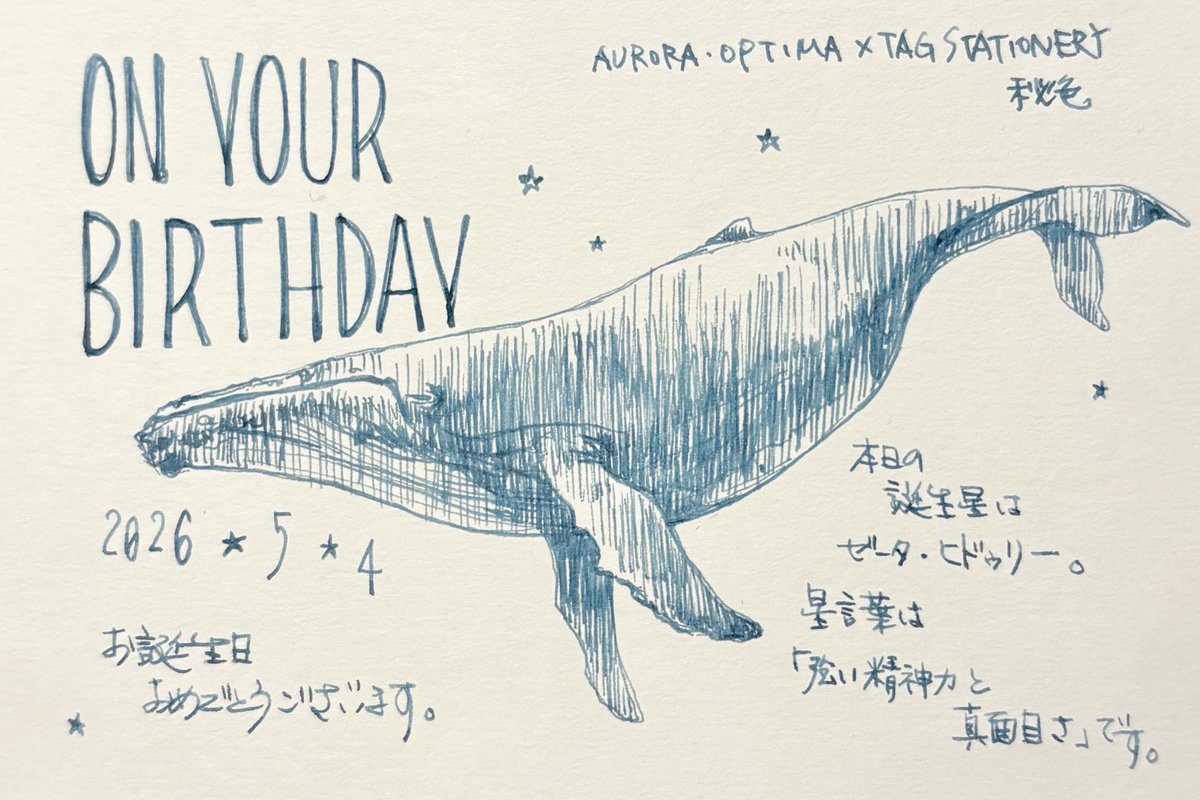 ON YOUR
BIRTHDAY
AURORA・OPTIMA × TAG STATIONERY
秘色
2026 ★ 5 ★ 4
お誕生日
おめでとうございます。
本日の
誕生星は
ゼータ・ヒドゥリー。
星言葉は
「強い精神力と
真面目さ」です。